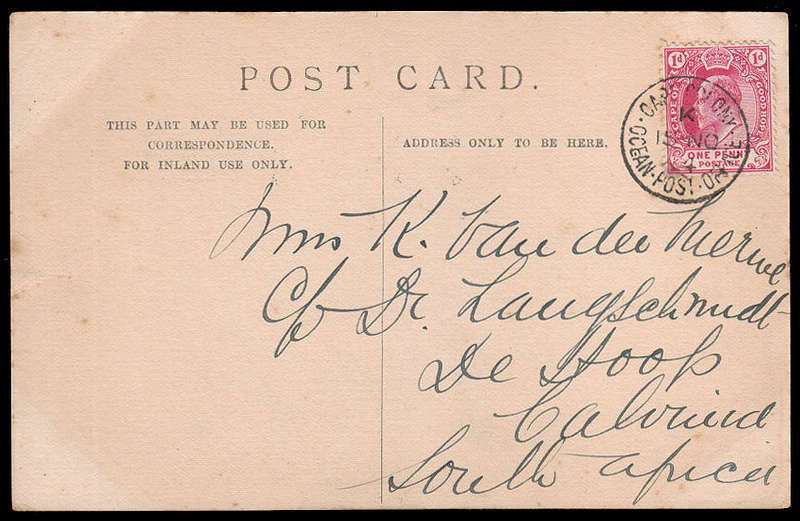 POST CARD.
THIS PART MAY BE USED FOR
CORRESPONDENCE.
FOR INLAND USE ONLY.
ADDRESS ONLY TO BE HERE.
1d 1d
CAPE OF GOOD HOPE
ONE PENNY
POSTAGE
CAPE COLONY
K
15 NO
04
OCEAN·POST·OFFICE
K. Van der Merwe
c/o Dr. Langschmidt
De Hoop
Calvinia
South Africa